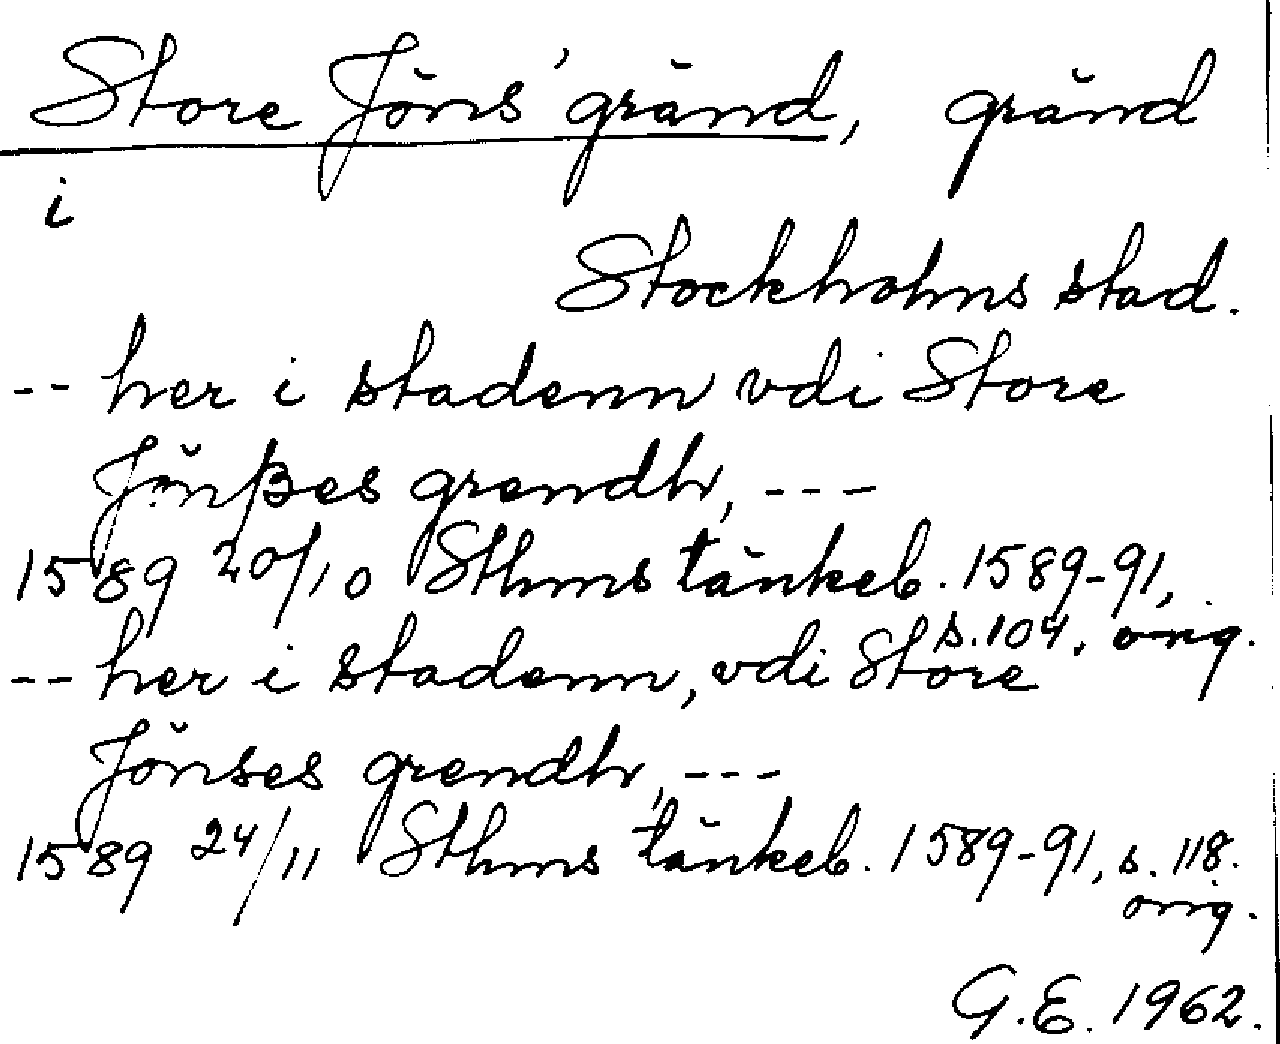 Store Jöns' gränd, gränd
i
Stockholms stad.
-- her i stadenn vdi Store
Jönßes grendh, ---
1589 20/10 Sthms tänkeb. 1589-91,
s. 104. orig.
-- her i stadenn, vdi Store
Jönses grendh, ---
1589 24/11 Sthms tänkeb. 1589-91, s. 118.
orig.
G.E. 1962.